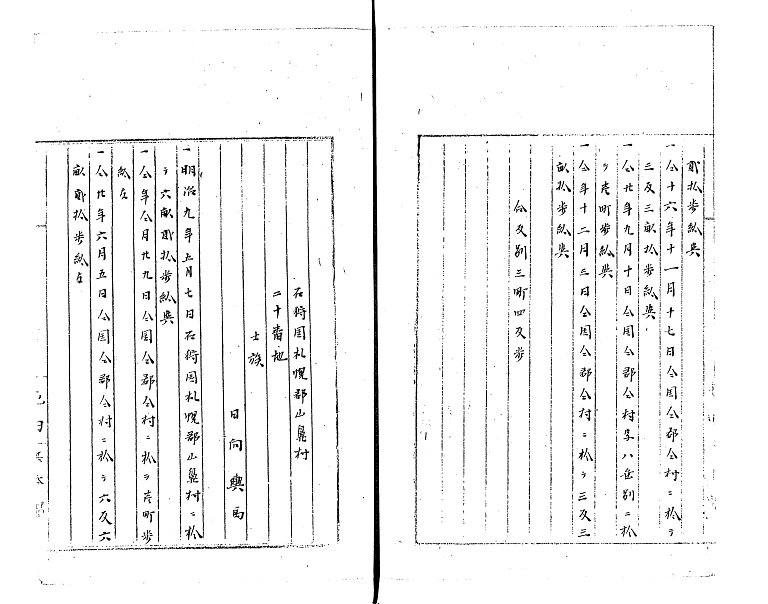 貳拾歩給与
一仝十六年十一月十七日仝国仝郡仝村ニ於ヲ
三反三畝拾歩給与
一仝廿年九月十日仝国仝郡仝村字八垂別ニ於
ヲ壱町歩給与
一仝年十二月三日仝国仝郡仝村ニ於ヲ三反三
畝拾歩給与
合反別三町四反歩
石狩国札幌郡山鼻村
二十番地
士族
日向興
一明治九年五月七日石狩国札幌郡山鼻村ニ於
ヲ六畝貳拾歩給与
一仝年仝月廿九日仝国仝郡仝村ニ於ヲ壱町歩
給与
一仝廿年六月五日仝国仝郡仝村ニ於ヲ六反六
畝貳拾歩給与